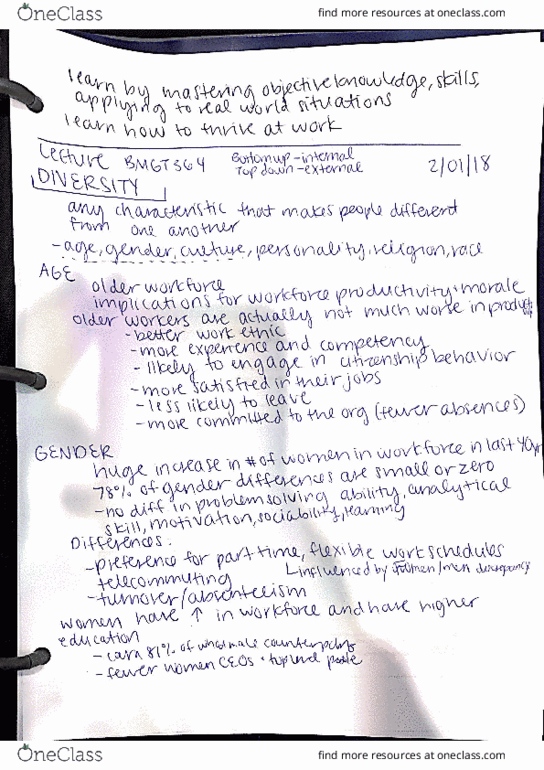 OneClass
find more resources at oneclass.com
learn by mastering objective knowledge, skills,
applying to real world situations
learn how to thrive at work
Lecture BMGT364 Bottom up - internal
Top down - external
2/01/18
DIVERSITY
any characteristic that makes people different
from one another
- age, gender, culture, personality, religion, race
AGE
older workforce
implications for workforce productivity + morale
older workers are actually not much worse in
- better work ethic
- more experience and competency
- likely to engage in citizenship behavior
- more satisfied in their jobs
- less likely to leave
- more committed to the org (fewer absences)
GENDER
huge increase in # of women in workforce in last 40yr
78% of gender differences are small or zero
- no diff in problem solving ability, analytical
skill, motivation, sociability, learning
Differences:
- preference for part time, flexible work schedules
telecommuting
influenced by women/men
- turnover/absenteeism
women have ↑ in workforce and have higher
education
- earn 81% of what male counterparts
- fewer women CEOs + top level
OneClass
find more resources at oneclass.com